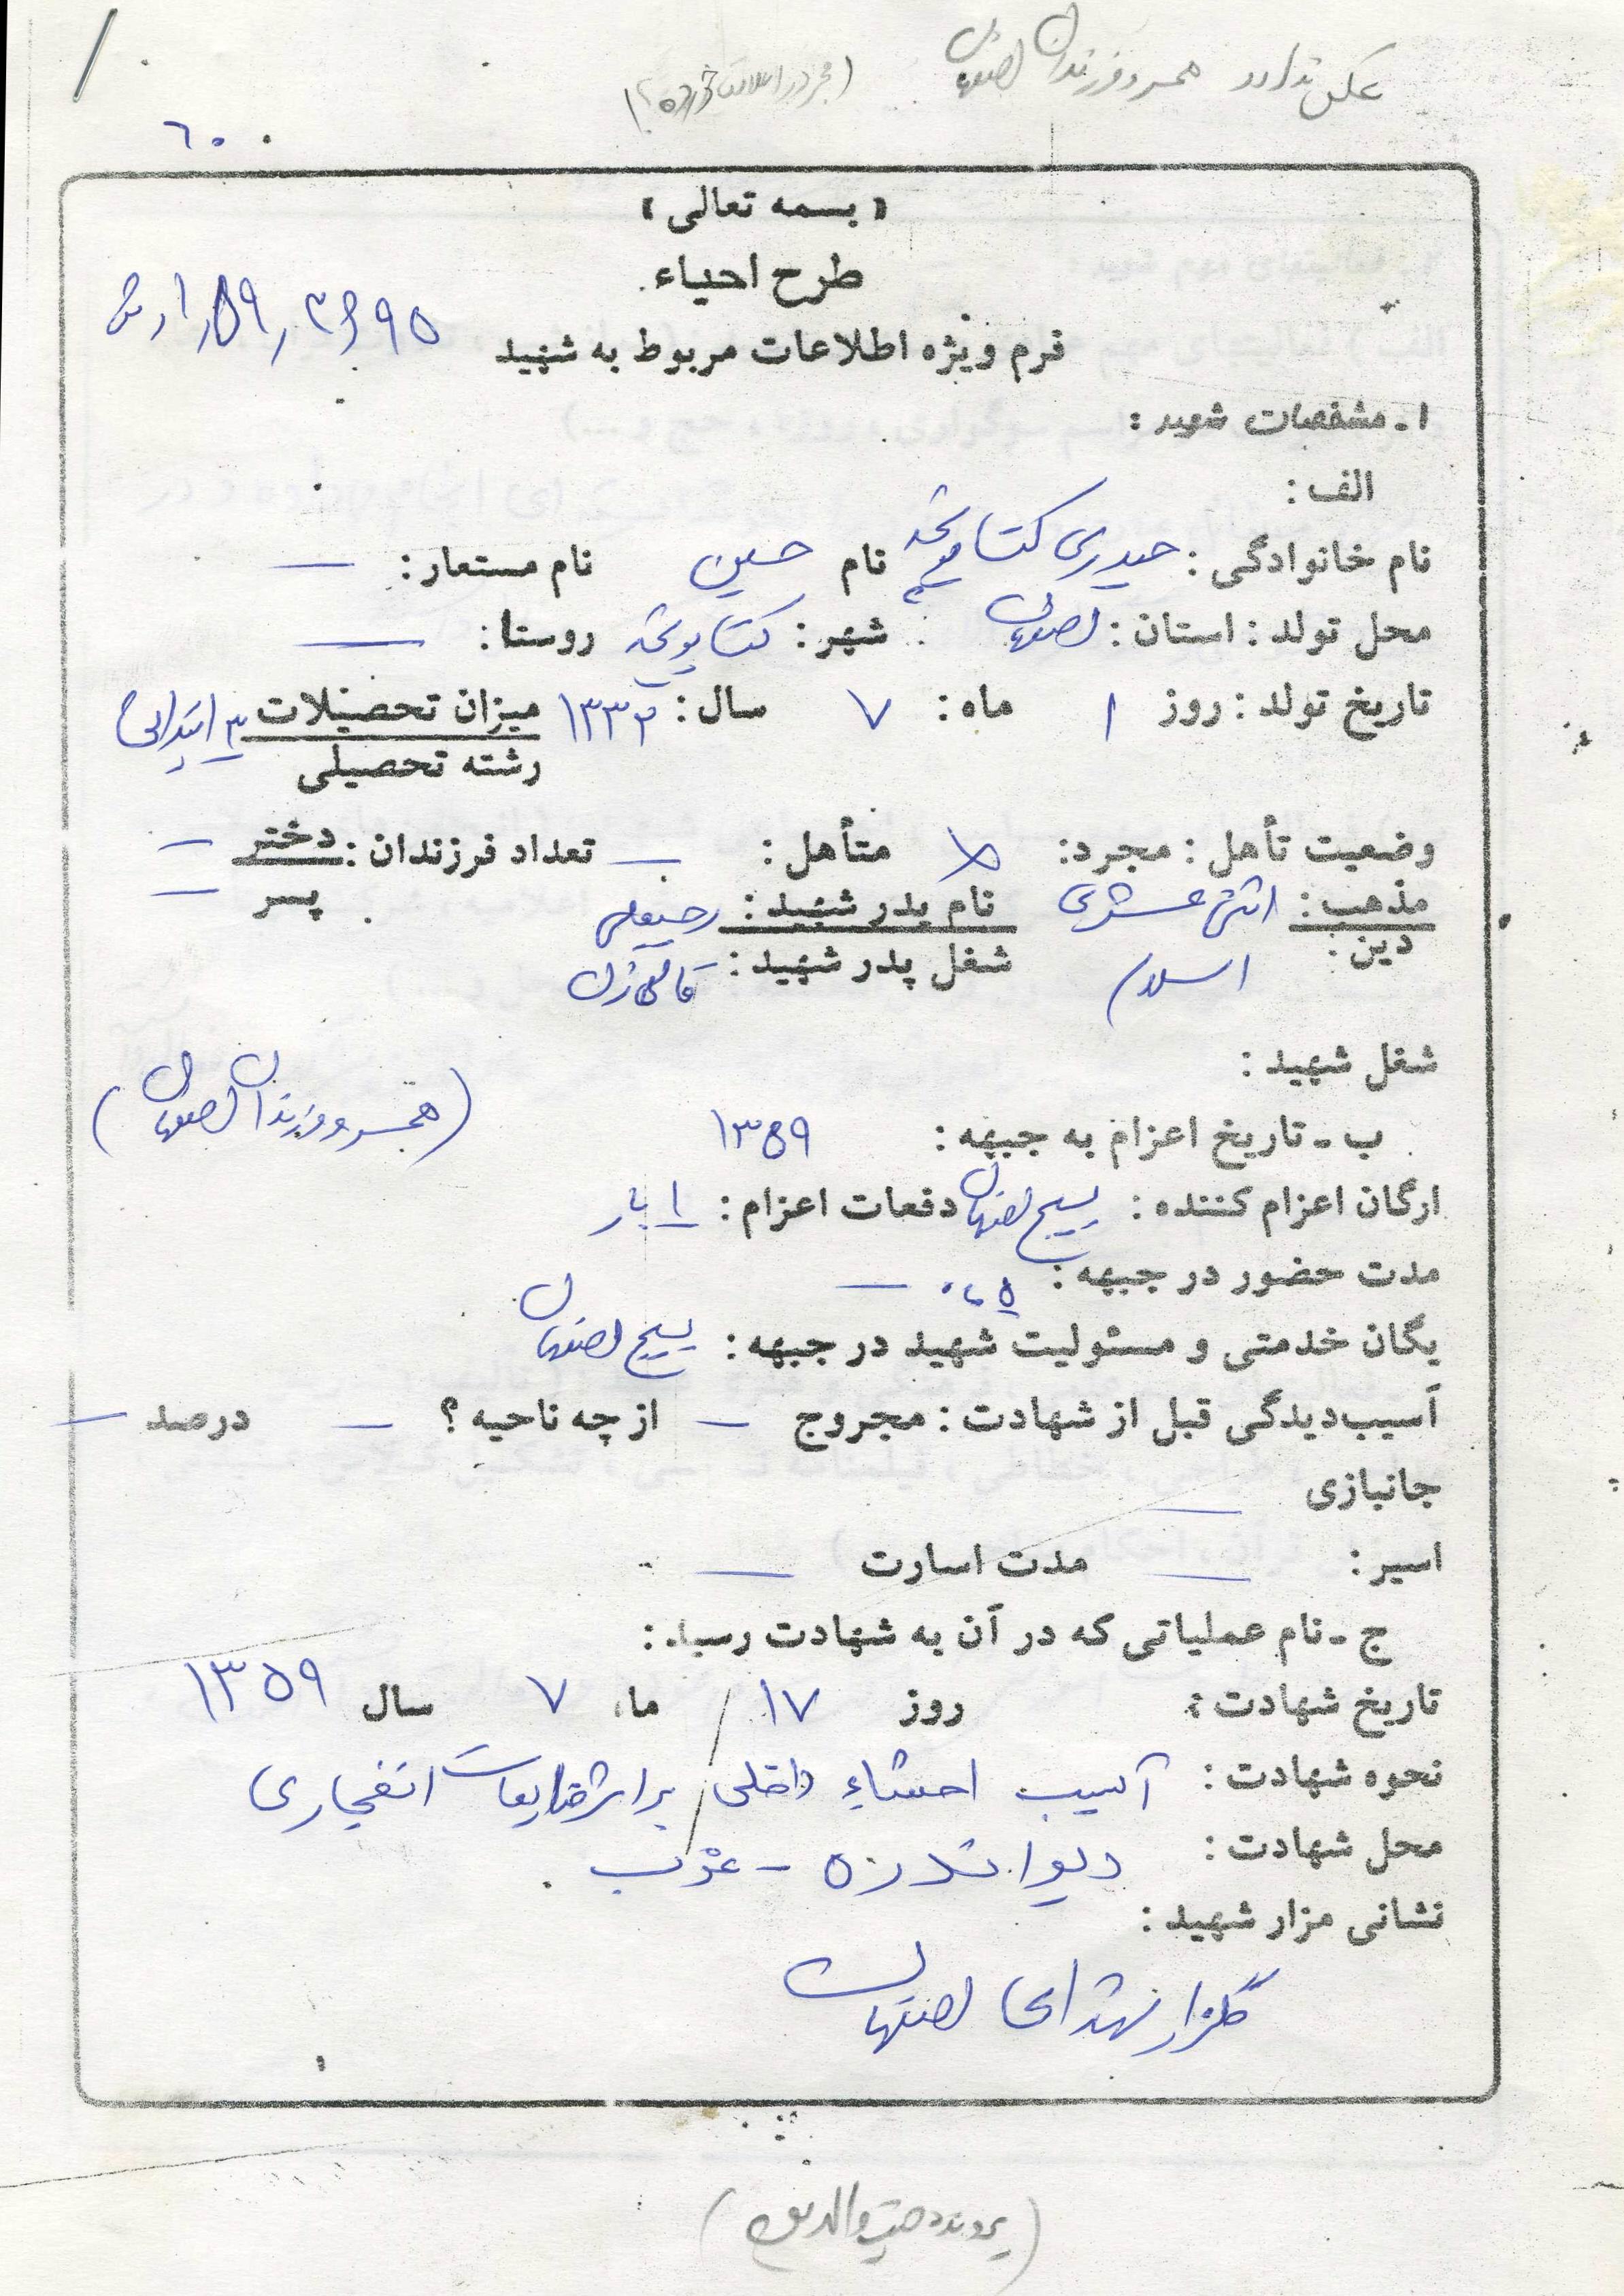 عکس ندارد همسر و فرزندان اصفهان
۶۰۰
« بسمه تعالی »
طرح احیاء
فرم ویژه اطلاعات مربوط به شهید
۱ـ مشخصات شهید :
الف :
نام خانوادگی : حیدری کتابونچه نام حسین نام مستعار : —
محل تولد : استان : اصفهان شهر : کتابونچه روستا : —
تاریخ تولد : روز ۱ ماه : ۷ سال : ۱۳۳۲ میزان تحصیلات ۳ ابتدائی
رشته تحصیلی
وضعیت تأهل : مجرد : متأهل : — تعداد فرزندان : دختر —
مذهب : اثنی عشری نام پدر شهید : رجبعلی پسر —
دین : اسلام شغل پدر شهید :
شغل شهید :
(همسر و فرزندان اصفهان)
ب ـ تاریخ اعزام به جبهه : ۱۳۵۹
ارگان اعزام کننده : بسیج اصفهان دفعات اعزام : ۱ بار
مدت حضور در جبهه : —
یگان خدمتی و مسئولیت شهید در جبهه : بسیج اصفهان
آسیب‌دیدگی قبل از شهادت : مجروح — از چه ناحیه ؟ — درصد —
جانبازی —
اسیر : — مدت اسارت —
ج ـ نام عملیاتی که در آن به شهادت رسید :
تاریخ شهادت : روز ۱۷ ماه ۷ سال ۱۳۵۹
نحوه شهادت : آسیب احشاء داخلی بر اثر ضایعات انفجاری
محل شهادت : دیواندره - غرب
نشانی مزار شهید :
گلزار شهدای اصفهان